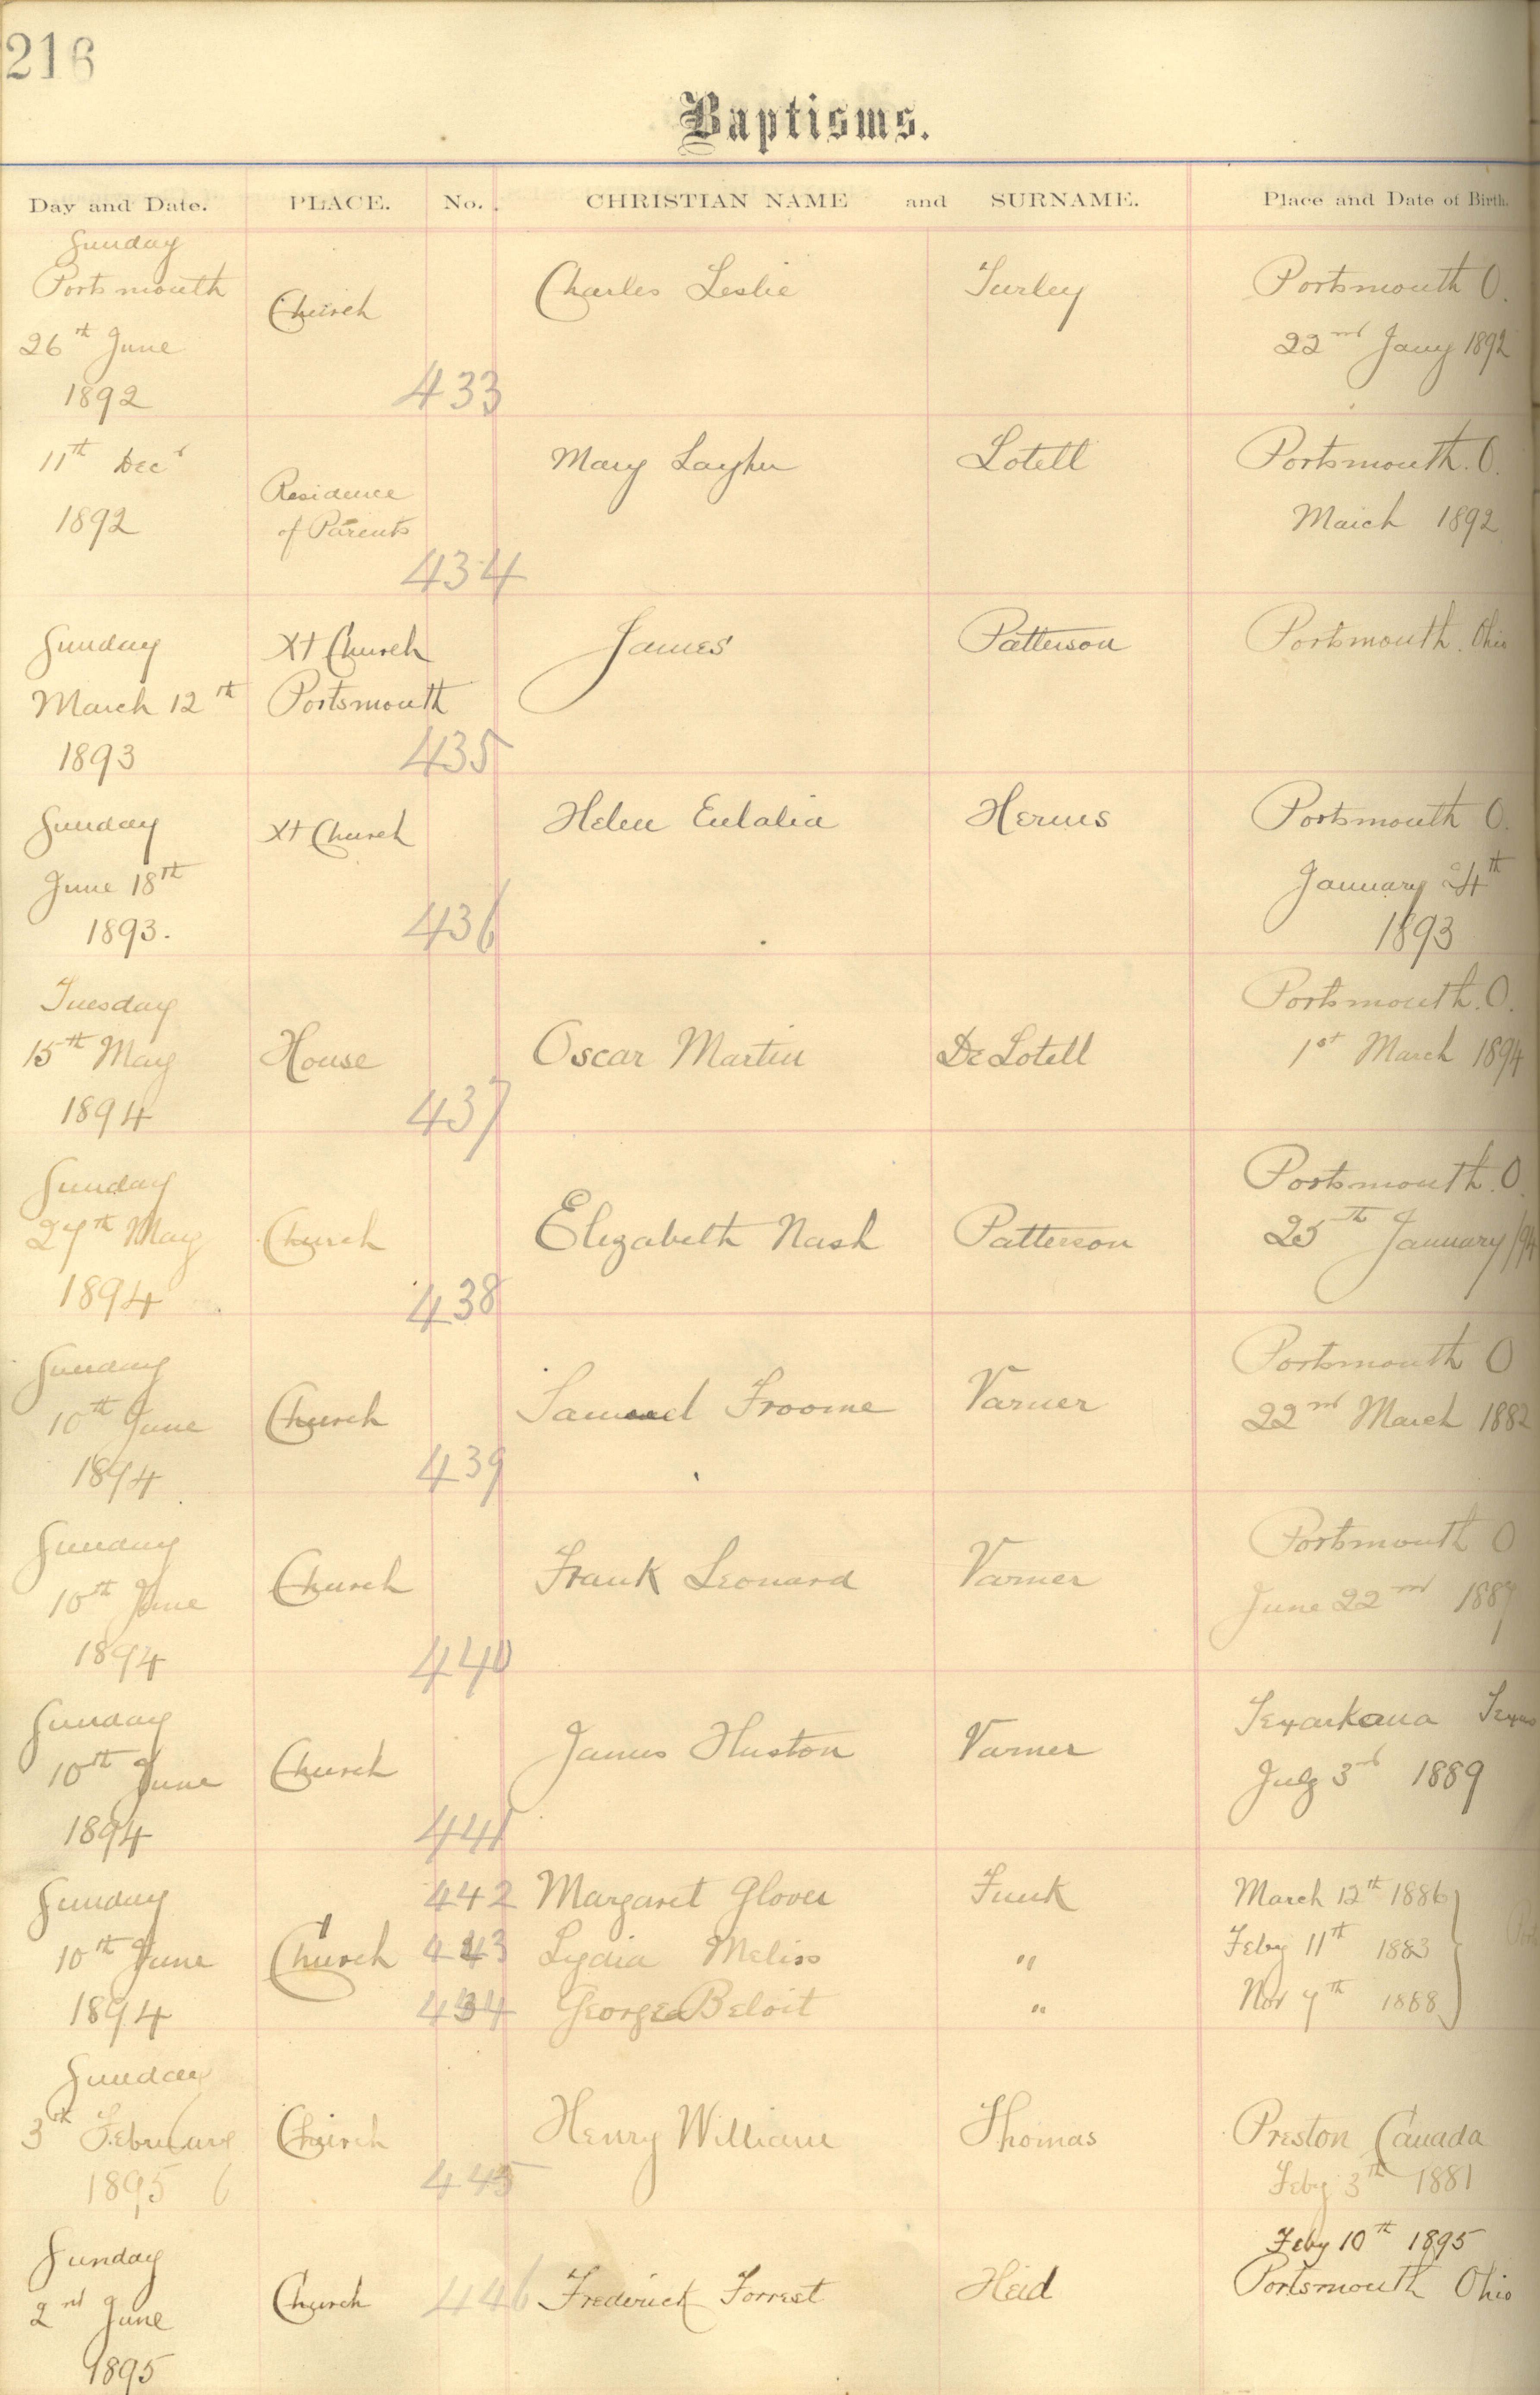 216
Baptisms.
Day and Date. PLACE. No. CHRISTIAN NAME and SURNAME. Place and Date of Birth.
Sunday
Portsmouth
26th June
1892
Church
433
Charles Leslie
Turley
Portsmouth O.
22nd Jany 1892
11th Decr
1892
Residence
of Parents
434
Mary Layher
Lotell
Portsmouth. O.
March 1892
Sunday
March 12th
1893
Xt Church
Portsmouth
435
James
Patterson
Portsmouth. Ohio
Sunday
June 18th
1893.
Xt Church
436
Helen Eulalia
Herms
Portsmouth O.
January 24th
1893
Tuesday
15th May
1894
House
437
Oscar Martin
De Lotell
Portsmouth. O.
1st March 1894
Sunday
27th May
1894
Church
438
Elizabeth Nash
Patterson
Portsmouth. O.
25th January /94
Sunday
10th June
1894
Church
439
Samuel Froome
Varner
Portsmouth O
22nd March 1882
Sunday
10th June
1894
Church
440
Frank Leonard
Varner
Portsmouth O
June 22nd 1887
Sunday
10th June
1894
Church
441
James Huston
Varner
Texarkana Texas
July 3rd 1889
Sunday
10th June
1894
Church
442 Margaret Glover Funk March 12th 1886
443 Lydia Meliss " Feby 11th 1883
434 George Beloit " Nov 7th 1888
Sunday
3rd February
1895 6
Church
445
Henry William
Thomas
Preston Canada
Feby 3rd 1881
Sunday
2nd June
1895
Church
446
Frederick Forrest
Heid
Feby 10th 1895
Portsmouth Ohio